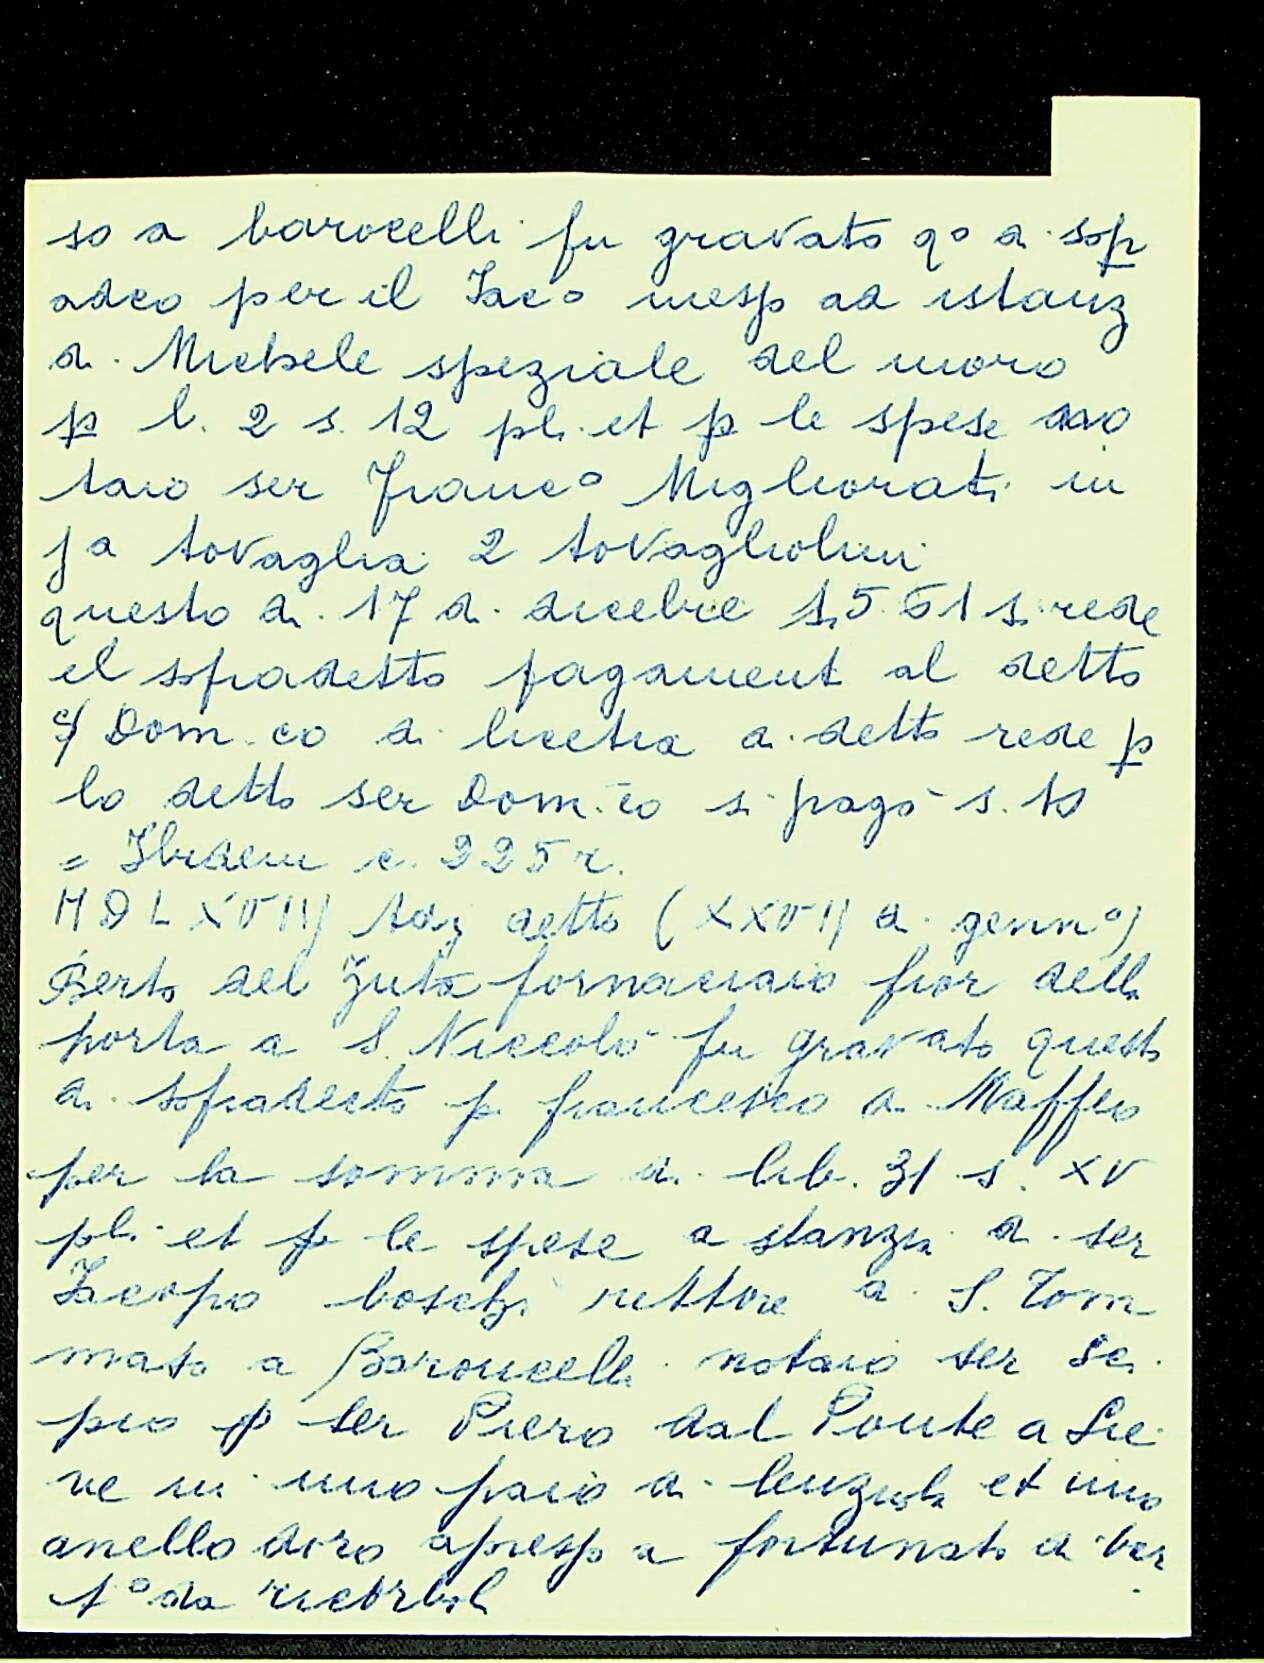 so a barocelli fu gravato qo a sop
adeo per il Iac.o mesp ad istanz
di Michele speziale del moro
p l. 2 s. 12 pli et p le spese no
taio ser Franc.o Migliorati in
ja tovaglia 2 tovagliolini
questo di 17 di dicebre 1561 si rede
el sopradetto pagament al detto
Dom.co di licetia di detto rede p
lo detto ser Dom.co si pagò s.
= Ibidem c. 225 r.
MDLXVIIJ detto (XXVIJ di genn.o)
Berto del Zuta fornaciaio fior della
porta a S. Niccolò fu gravato questo
di sopradecto p. francesco di Maffeo
per la somma di lib. 31 s. XV
pli et p le spese a stanzia di ser
Iacopo boschi rettore di S. Tom
maso a Baroncelli notaio ser Sci
pio p ser Piero dal Ponte a Sie
ve in uno paio di lenzuola et uno
anello doro apresp a fortunato di ber
t.o da ricorboli